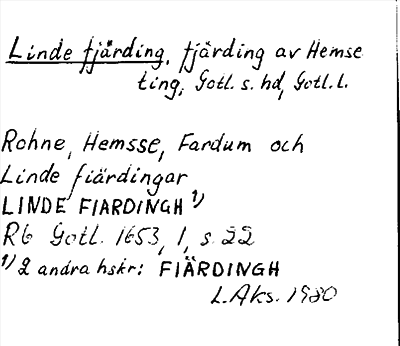 Linde fjärding, fjärding av Hemse
ting, Gotl. s. hd, Gotl. l.
Rohne, Hemsse, Fardum och
Linde fiärdingar
LINDE FIARDINGH 1)
R6 Gotl. 1653, 1, s. 22
1) 2 andra hskr: FIÄRDINGH
L. Aks. 1980